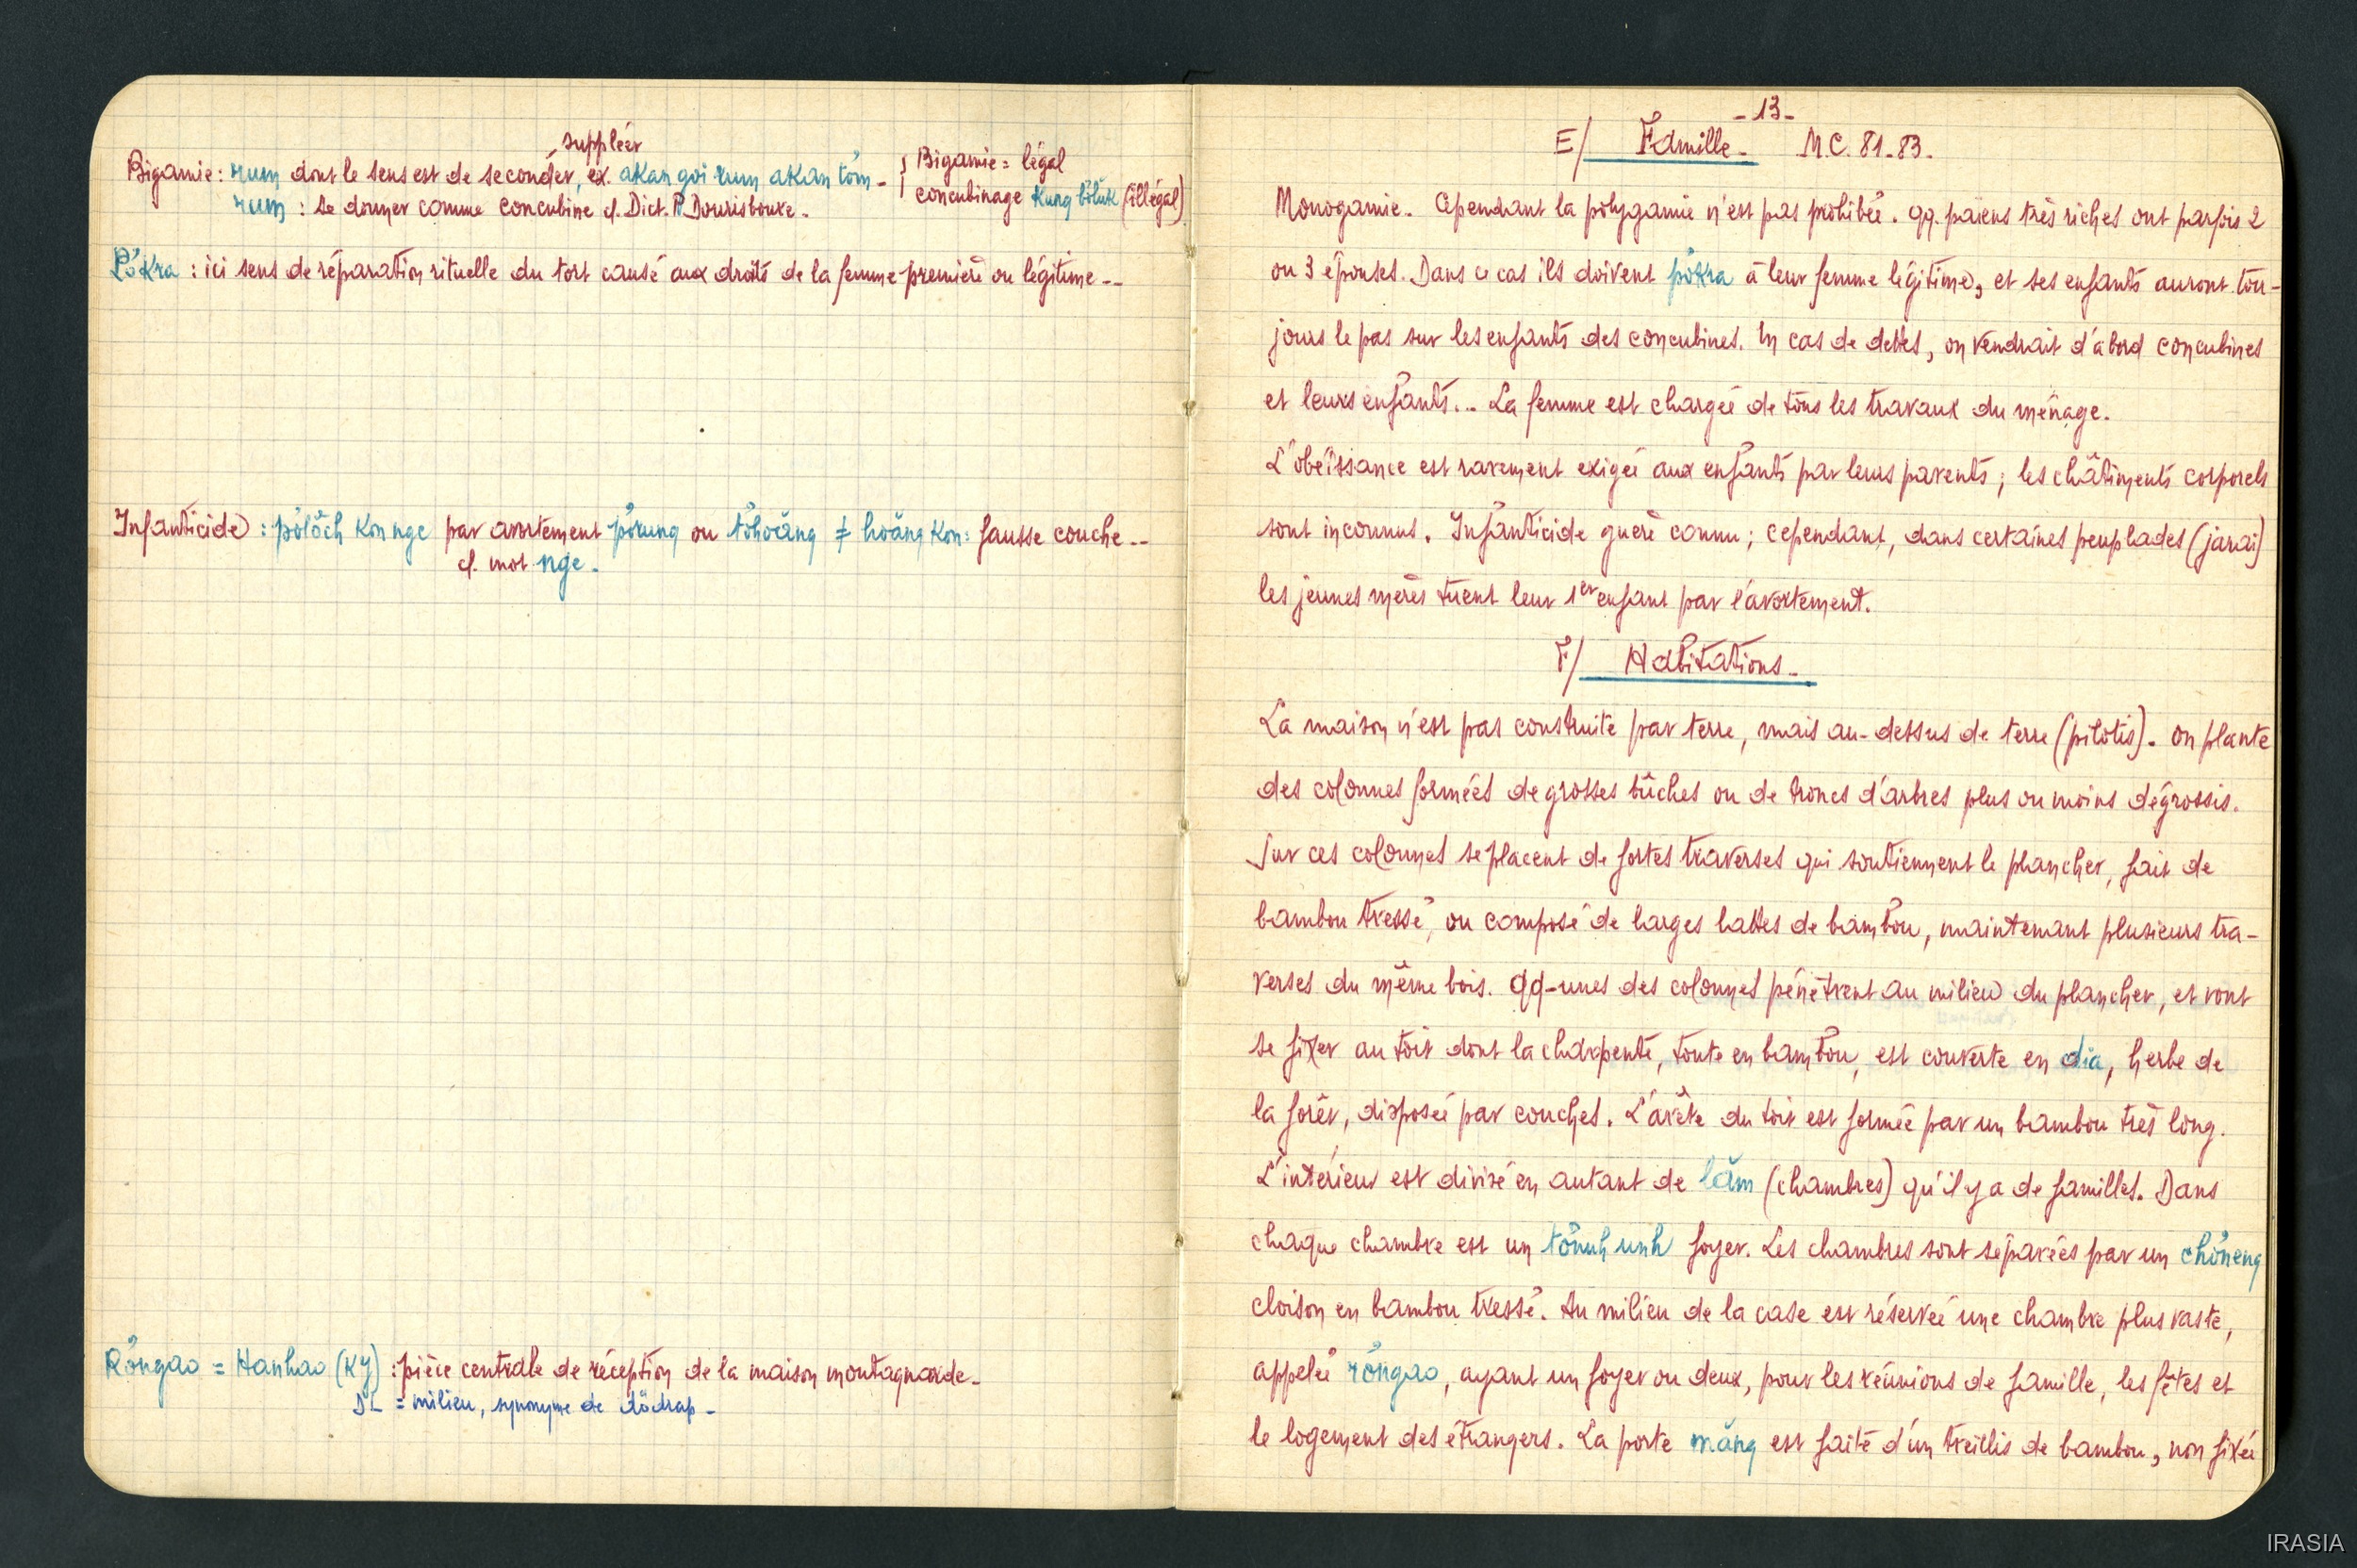 suppléer
Bigamie : rum dont le sens est de seconder, ex. akan goi rum akan tŏm - Bigamie = légal
rum : se donner comme concubine cf. Dict. P. Dourisboure. concubinage kung bŏluk (illégal)
Pơkra : ici sens de réparation rituelle du tort causé aux droits de la femme première ou légitime --
Infanticide : pơlŏch kon nge par avortement pơrung ou tơhoăng ≠ hoăng kon : fausse couche --
cf. mot nge.
Rơngao = Hanhao (KJ) : pièce centrale de réception de la maison montagnarde -
DL = milieu, synonyme de dŏdrap -
- 13 -
E/ Famille - M.C. 81-83.
Monogamie. Cependant la polygamie n'est pas prohibée. qq. païens très riches ont parfois 2
ou 3 épouses. Dans ce cas ils doivent pơkra à leur femme légitime, et ses enfants auront tou-
jours le pas sur les enfants des concubines. En cas de dettes, on vendrait d'abord concubines
et leurs enfants... La femme est chargée de tous les travaux du ménage.
L'obéissance est rarement exigée aux enfants par leurs parents ; les châtiments corporels
sont inconnus. Infanticide guère connu ; cependant, dans certaines peuplades (jarai)
les jeunes mères tuent leur 1er enfant par l'avortement.
F/ Habitations -
La maison n'est pas construite par terre, mais au-dessus de terre (pilotis). On plante
des colonnes formées de grosses bûches ou de troncs d'arbres plus ou moins dégrossis.
Sur ces colonnes se placent de fortes traverses qui soutiennent le plancher, fait de
bambou tressé, ou composé de larges lattes de bambou, maintenant plusieurs tra-
verses du même bois. qq-unes des colonnes pénètrent au milieu du plancher, et vont
se fixer au toit dont la charpente, toute en bambou, est couverte en dia, herbe de
la forêt, disposée par couches. L'arête du toit est formée par un bambou très long.
L'intérieur est divisé en autant de lăm (chambres) qu'il y a de familles. Dans
chaque chambre est un tơnuh unh foyer. Les chambres sont séparées par un chơneng
cloison en bambou tressé. Au milieu de la case est réservée une chambre plus vaste,
appelée rơngao, ayant un foyer ou deux, pour les réunions de famille, les fêtes et
le logement des étrangers. La porte măng est faite d'un treillis de bambou, non fixée
IRASIA